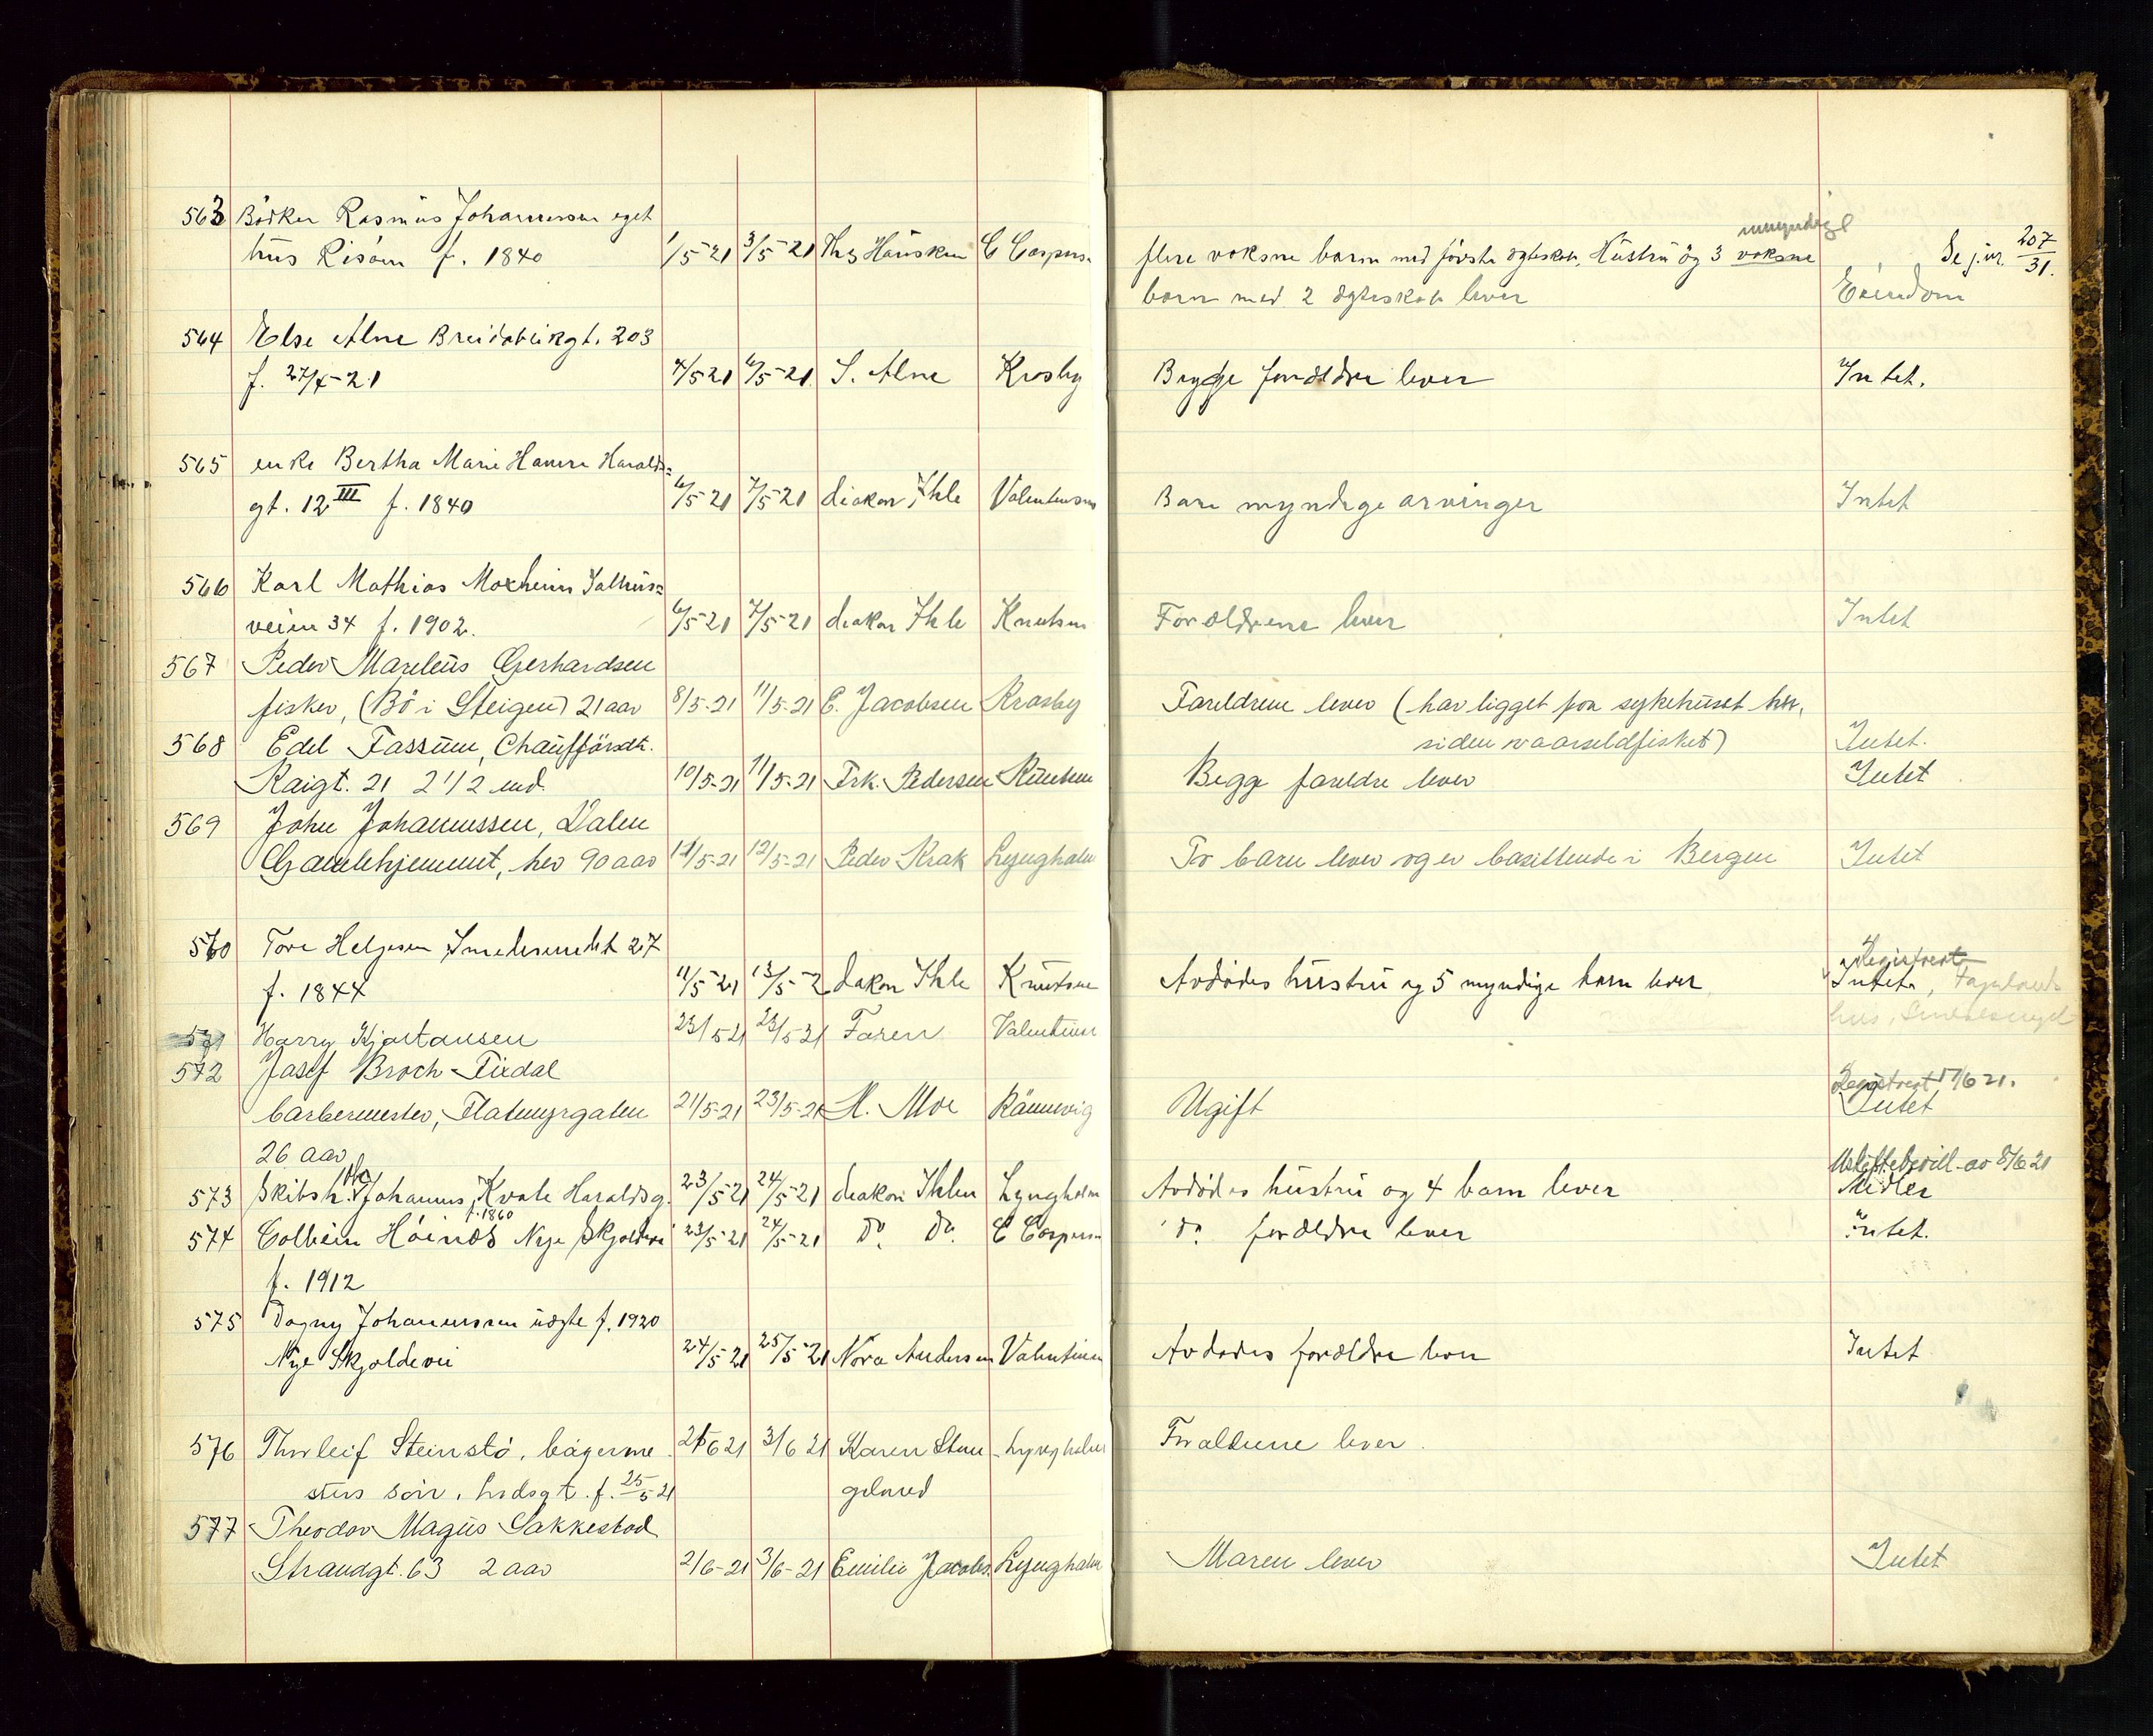 563 Bödker Rasmus Johannesen eget
hus Risöen f. 1840 1/5-21 3/5-21 Ths Hausken C Caspers. flere voksne barn med förste ægteskab, Hustru og 3 voksne umyndige Se j.nr. 207/31.
barn med 2 ægteskab lever Eiendom
564 Else Alne Breidablikgt. 203
f. 27/4-21 4/5 21 6/5-21 S. Alne Krosby Begge forældre lever Intet.
565 enke Bertha Marie Hamre Haralds=
gt. 12 III f. 1840 6/5 21 7/5 21 diakon Ihle Valentinsen Bare myndige arvinger Intet
566 Karl Mathias Moxheim Salhus=
veien 34 f. 1902. 6/5-21 7/5-21 diakon Ihle Knutsen Forældrene lever Intet
567 Peder Marelius Gerhardsen
fisker, (Bö i Steigen) 21 aar 8/5-21 11/5-21 E. Jacobsen Krosby Foreldrene lever (har ligget paa sykehuset her,
siden vaarsildfisket) Intet.
568 Edel Fassum, Chaufförsdt.
Kaigt. 21 2 1/2 md. 10/5-21 11/5-21 Frk. Pedersen Knutsen Begge foreldre lever Intet
569 John Johannessen, Dalen
Gamlehjemmet, her 90 aar 11/5-21 12/5-21 Peder Krak Lyngholm To barn lever og er bosittende i Bergen Intet
570 Tore Helgesen Smedesundet 27
f. 1844 11/5 21 13/5-2 diakon Ihle Knutsen Avdödes hustru og 5 myndige barn lever Registrert
Intet,
hus,
571 Harry Kjartansen 23/5 21 23/5 21 Faren Valentinsen
572 Josef Broch Tixdal
barbermester, Flatmyrgaten 21/5-21 23/5-21 H. Moe Rönnevig Ugift Registrert 17/6 21.
Intet
26 aar
573 Skibsh. Johannes Kvale Haraldsg. f. 1860 23/5 21 24/5-21 diakon Ihlen Lyngholm Avdödes hustru og 4 barn lever Uskiftebevill. av 8/6 21
Midler
574 Colbein Höines Nye Skjoldevei 23/5-21 24/5-21 do. do. C Caspersen do. forældre lever Intet.
f. 1912
575 Dagny Johannessen uægte f. 1920
Nye Skjoldevei 24/5 21 25/5-21 Nora Andersen Valentinsen Avdödes forældre lever Intet
576 Thorleif Steinstö, bagerme 2/6 21 3/6 21 Karen Steen Lyngholm Forældrene lever.
sters sön, hrdsgt. f. 25/5 21
577 Theodor Magus Sakkestad
Strandgt. 63 2 aar 2/6-21 3/6-21 Emilie Jacobs. Lyngholm Moren lever Intet